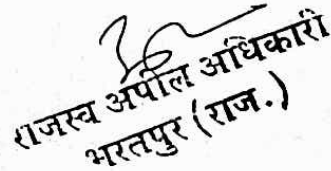 राजस्व अपील अधिकारी
भरतपुर (राज.)